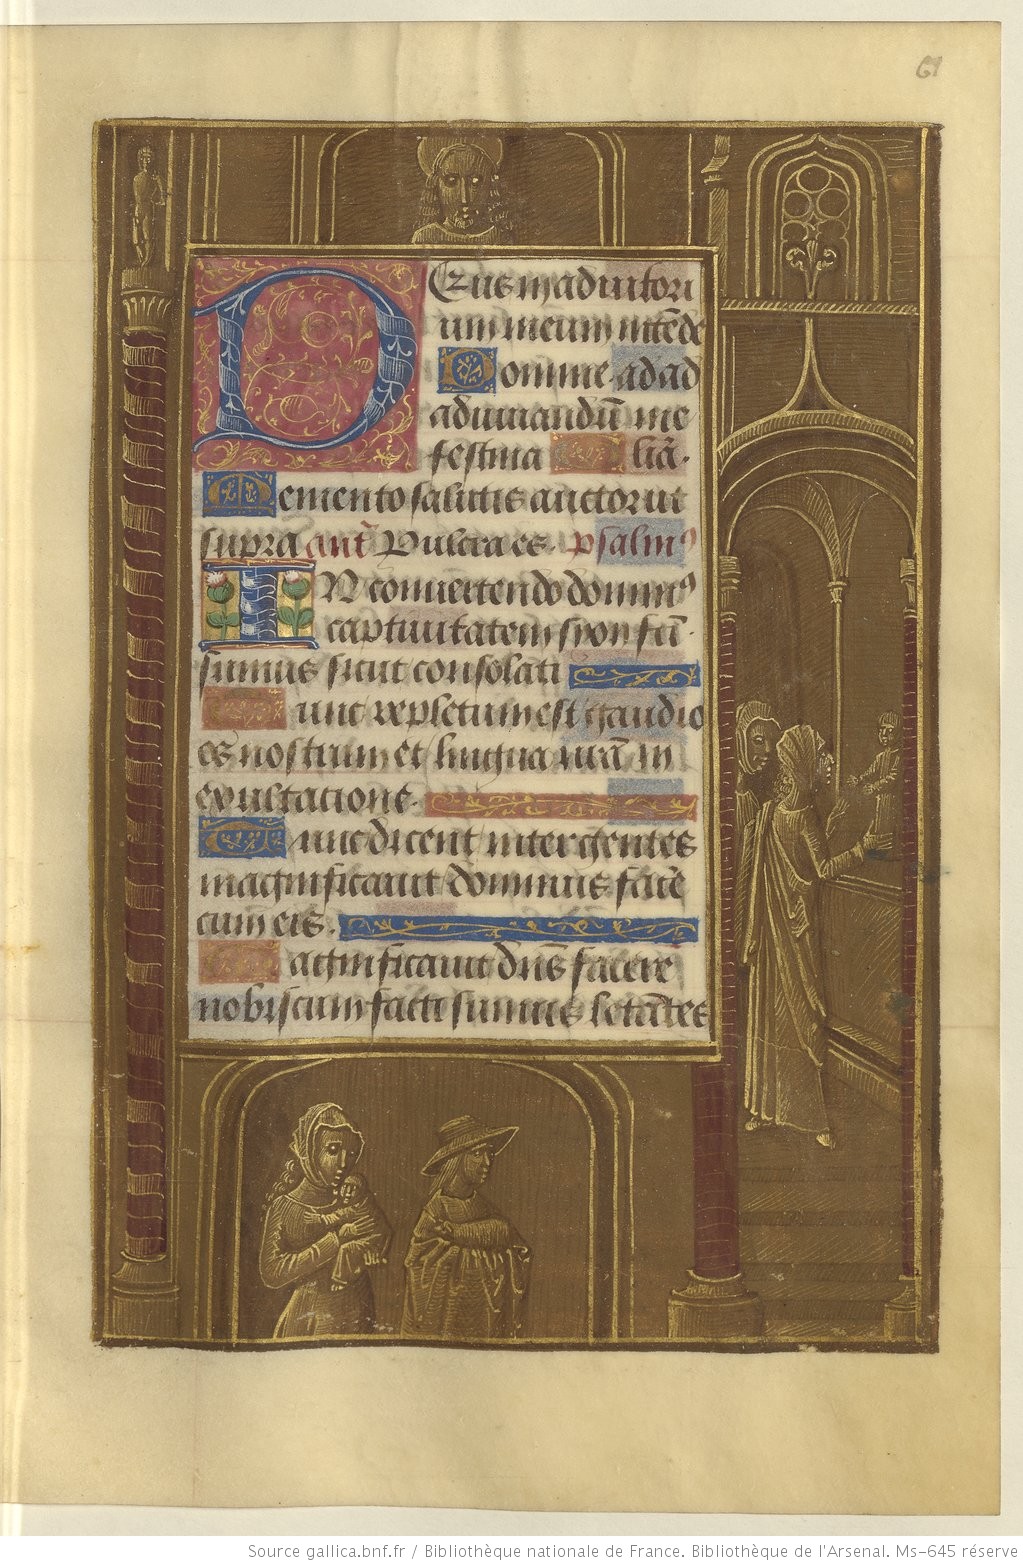 61
DEus in adiutori
um meum intēde
Domine ad ad
adiuuandū me
festina l̄ia.
Memento salutis auctor ut
supra ant̄ Pulcra es. psalmꝰ
IN conuertendo dominꝰ
captiuitatem syon fcī.
sumus sicut consolati
unc repletum est gaudio
os nostrum et lingua nrā in
exultatione.
Tunc dicent inter gentes
magnificauit dominus facē
cum eis.
agnificauit dn̄s facere
nobiscum facti sumus letātes
Source gallica.bnf.fr / Bibliothèque nationale de France. Bibliothèque de l'Arsenal. Ms-645 réserve